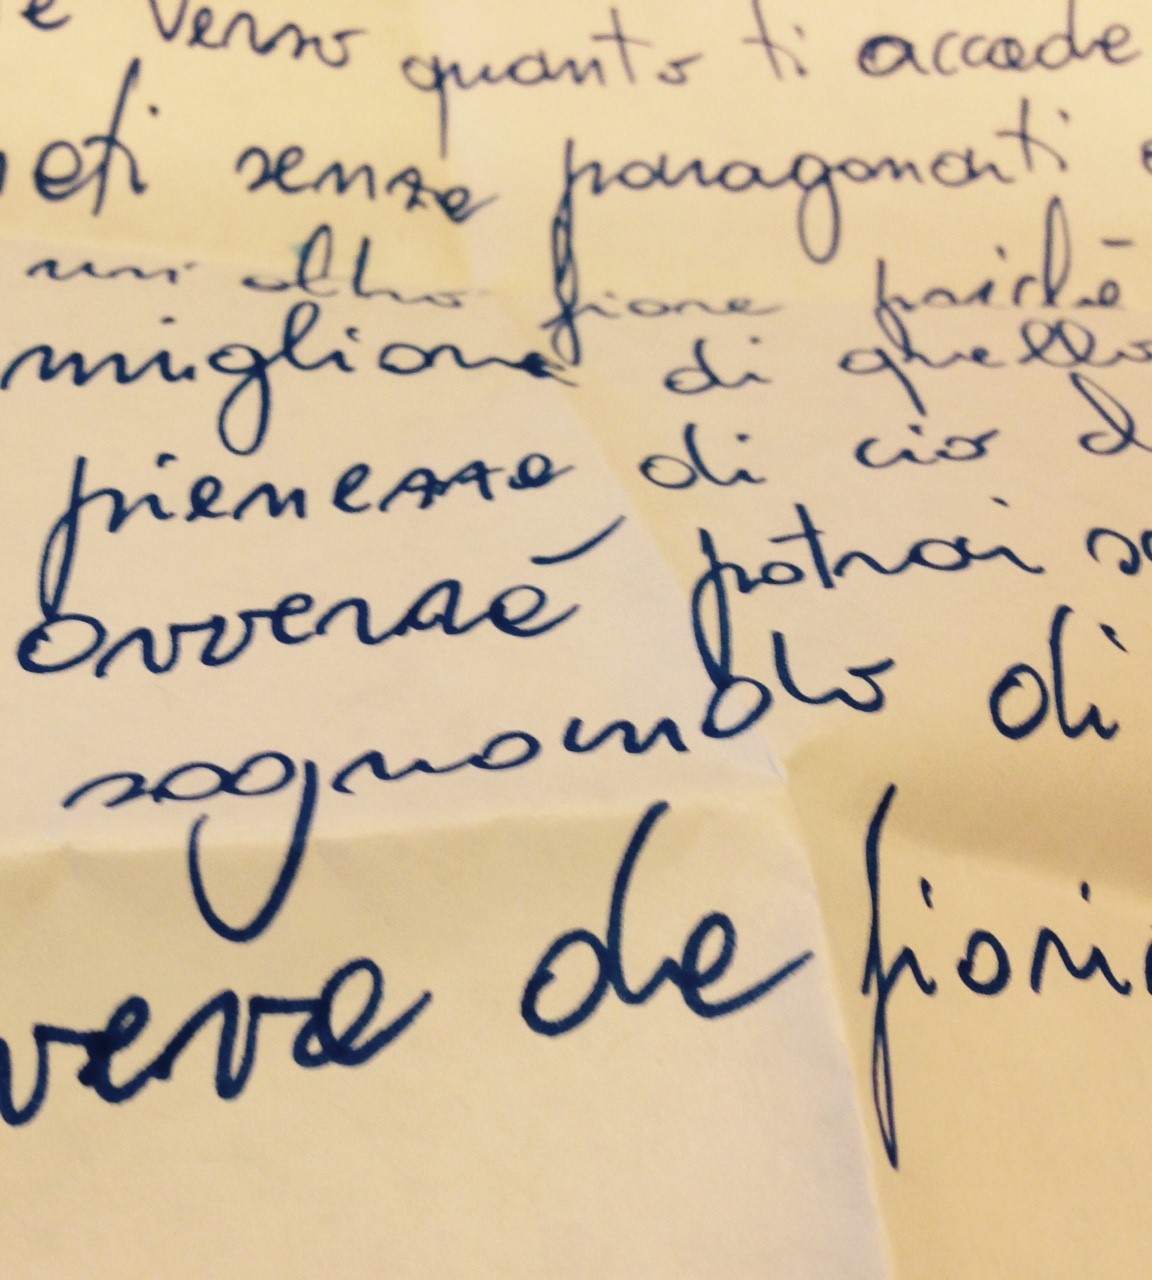 e verso quanto ti accade
eti senza paragonarti
un altro fiore poiché
migliore di quello
pienezza di ciò
avverrà potrai
sognando lo di
di
fiori